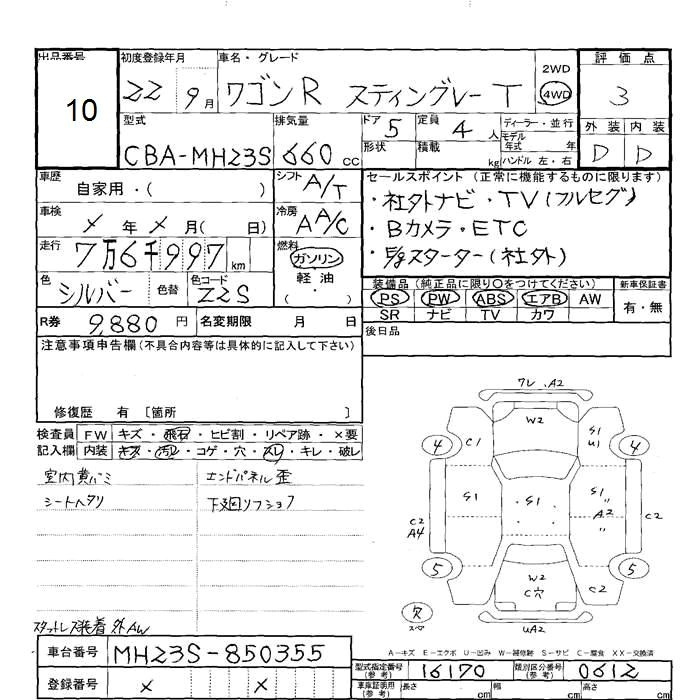 出品番号 初度登録年月 車名・グレード 評価点
10 22 9月 ワゴンR スティングレー T 2WD 4WD 3
型式 排気量 ドア 5 定員 4人 ディーラー・並行 外装 内装
CBA-MH23S 660cc 形状 積載 kg モデル年式 年 ハンドル 左・右 D D
車歴 自家用・( ) シフト A/T セールスポイント (正常に機能するものに限ります)
車検 X年X月( 日) 冷房 AA/C ・社外ナビ・TV(フルセグ)
走行 7万6千997km 燃料 ガソリン ・Bカメラ・ETC
軽油 ・( ) ・E/gスターター(社外)
色 シルバー 色替 色コード Z2S 装備品 (純正品に限り○をつけてください) 新車保証書
PS PW ABS エアB AW 有・無
SR ナビ TV カワ
R券 9,880円 名変期限 月 日 後日品
注意事項申告欄(不具合内容等は具体的に記入して下さい)
修復歴 有 [箇所 ]
検査員 FW キズ・飛石・ヒビ割・リペア跡・×要
記入欄 内装 キズ・汚レ・コゲ・穴・スレ・キレ・破レ
室内黄バミ エンドパネル歪
シートヘタリ 下廻リフショク
スタットレス装着 外AW
ワレ、A2
W2
4 C1 S1 U1 4
S1 S1 S1 〃
C2 A4 A2 〃 C2
5 W2 C穴 C2 5
欠 スペア
UA2
A―キズ E―エクボ U―凹み W―補修跡 S―サビ C―腐食 XX―交換済
車台番号 MH23S-850355
登録番号 X X
型式指定番号(参考) 16170 類別区分番号(参考) 0612
車庫証明用(参考) 長さ cm 幅 cm 高さ cm